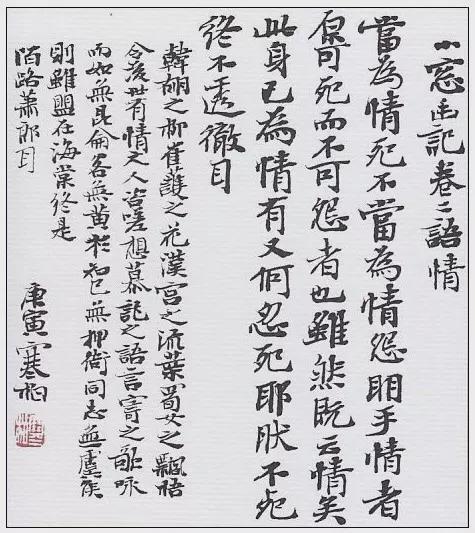 小窓幽記卷二語情
當為情死不當為情怨明乎情者
原可死而不可怨者也雖然既云情矣
此身已為情有又何忍死耶肰不死
終不透徹耳
韓翃之柳崔護之花漢宮之流葉蜀女之飄梧
令後世有情之人咨嗟想慕託之語言寄之歌咏
而奴無昆侖客無黄衫知己無押衙同志無虞侯
則雖盟在海棠終是
陌路蕭郎耳
庚寅寒柏